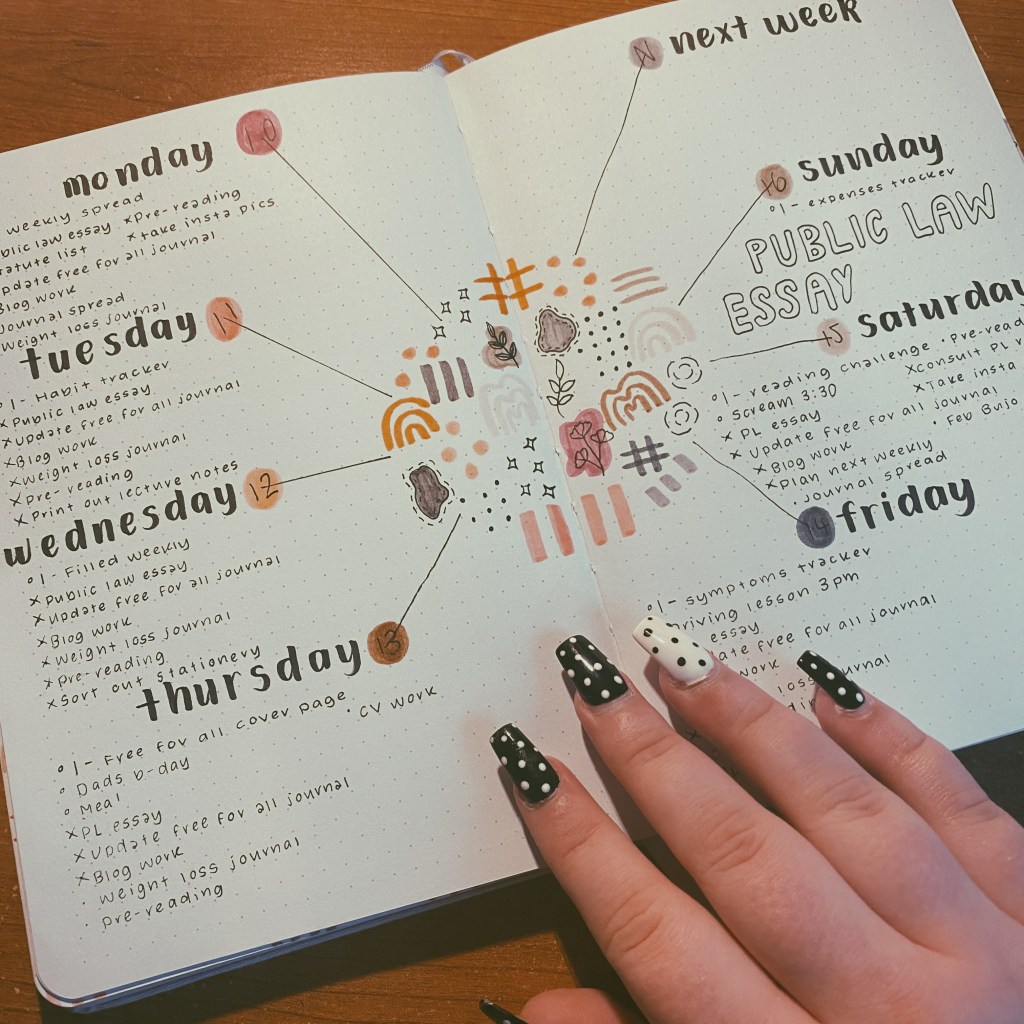 monday 10
weekly spread
public law essay × pre-reading
statute list × take insta pics
update free for all journal
Blog work
Journal spread
Weight loss journal
tuesday 11
° 1- Habit tracker
× Public law essay
× Update free for all journal
× Blog work
× Weight loss journal
× Pre-reading
× Print out lecture notes
wednesday 12
° 1- Filled weekly
× Public law essay
× Update free for all journal
× Blog work
× Weight loss journal
× Pre-reading
× Sort out stationery
thursday 13
° 1- Free for all cover page · CV work
° Dads b-day
° Meal
× PL essay
× Update free for all journal
× Blog work
· Weight loss journal
· pre-reading
N next week
16 sunday
° 1- expenses tracker
PUBLIC LAW
ESSAY
15 saturday
° 1- reading challenge · Pre-read
° Scream 3:30 × Consult PL
× PL essay × Take insta
× Update free for all journal
× Blog work · Feb Bujo
× plan next weekly
· Journal spread
14 friday
° 1- symptoms tracker
driving lesson 3pm
essay
date free for all journal
work
loss journal